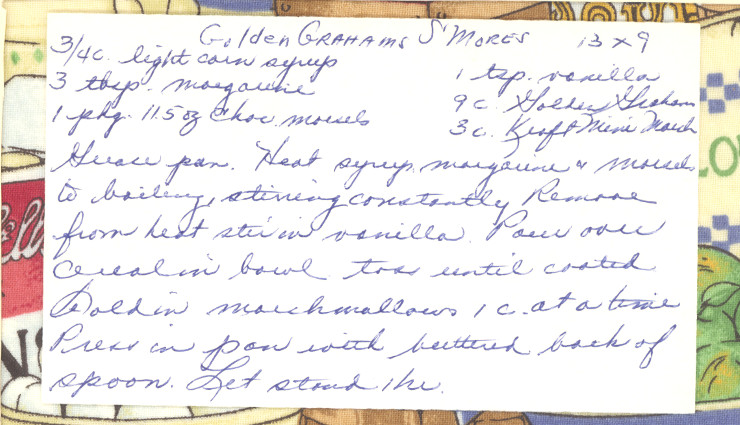 Golden GRAHAMS S'MORES 13 x 9
3/4 c. light corn syrup
3 tbsp. margarine 1 tsp. vanilla
1 pkg. 11.5 oz choc morsels 9 c. Golden Graham
3 c. Kraft Mini Marsh
Grease pan. Heat syrup, margarine & morsels
to boiling, stirring constantly Remove
from heat stir in vanilla. Pour over
cereal in bowl toss until coated
Fold in marshmallows 1 c. at a time
Press in pan with buttered back of
spoon. Let stand 1 hr.